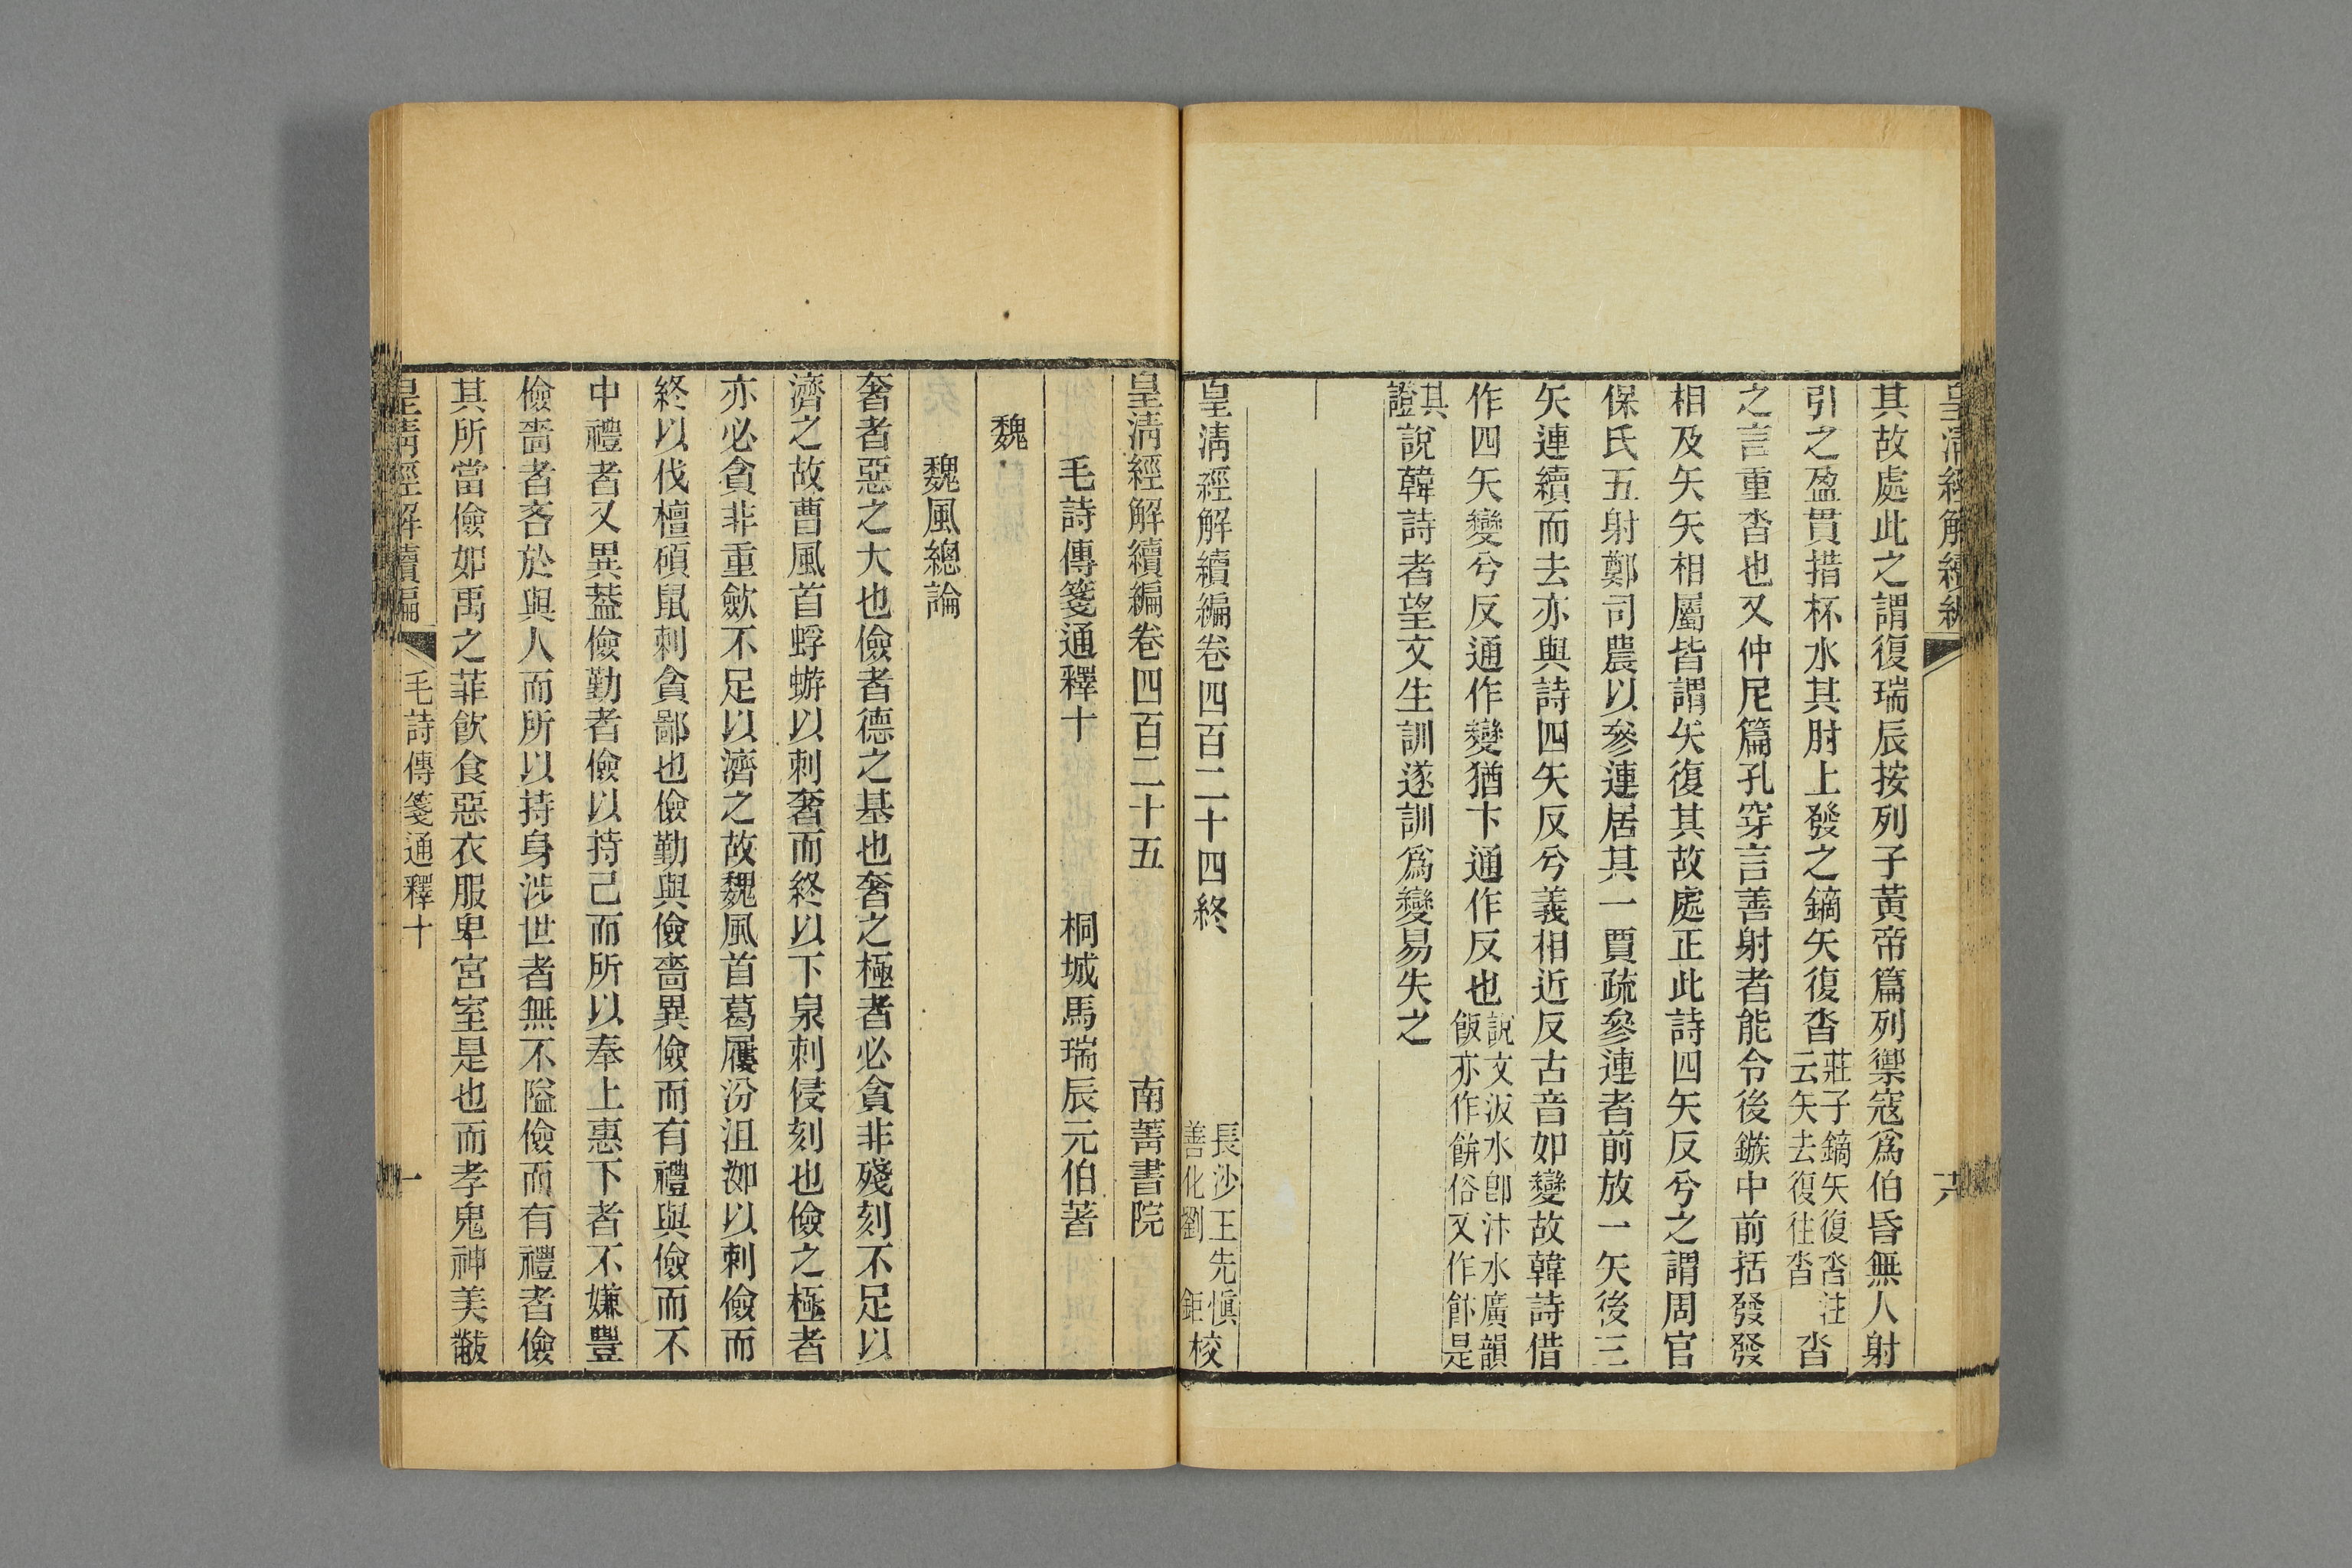 皇清經解續編
十六
其故處此之謂復瑞辰按列子黃帝篇列禦寇爲伯昏無人射
引之盈貫措杯水其肘上發之鏑矢復沓莊子鏑矢復沓注云矢去復往沓沓
之言重沓也又仲尼篇孔穿言善射者能令後鏃中前括發發
相及矢矢相屬皆謂矢復其故處正此詩四矢反兮之謂周官
保氏五射鄭司農以參連居其一賈疏參連者前放一矢後三
矢連續而去亦與詩四矢反兮義相近反古音如變故韓詩借
作四矢變兮反通作變猶卞通作反也說文汳水卽汴水廣韻飯亦作餅俗又作飰是
其證說韓詩者望文生訓遂訓爲變易失之
皇清經解續編卷四百二十四終
長沙王先愼
善化劉鉅校
皇清經解續編卷四百二十五
南菁書院
毛詩傳箋通釋十
桐城馬瑞辰元伯著
魏
魏風總論
奢者惡之大也儉者德之基也奢之極者必貪非殘刻不足以
濟之故曹風首蜉蝣以刺奢而終以下泉刺侵刻也儉之極者
亦必貪非重歛不足以濟之故魏風首葛屨汾沮洳以刺儉而
終以伐檀碩鼠刺貪鄙也儉勤與儉嗇異儉而有禮與儉而不
中禮者又異葢儉勤者儉以持己而所以奉上惠下者不嫌豐
儉嗇者吝於與人而所以持身涉世者無不隘儉而有禮者儉
其所當儉如禹之菲飮食惡衣服卑宮室是也而孝鬼神美黻
皇清經解續編
毛詩傳箋通釋十
一